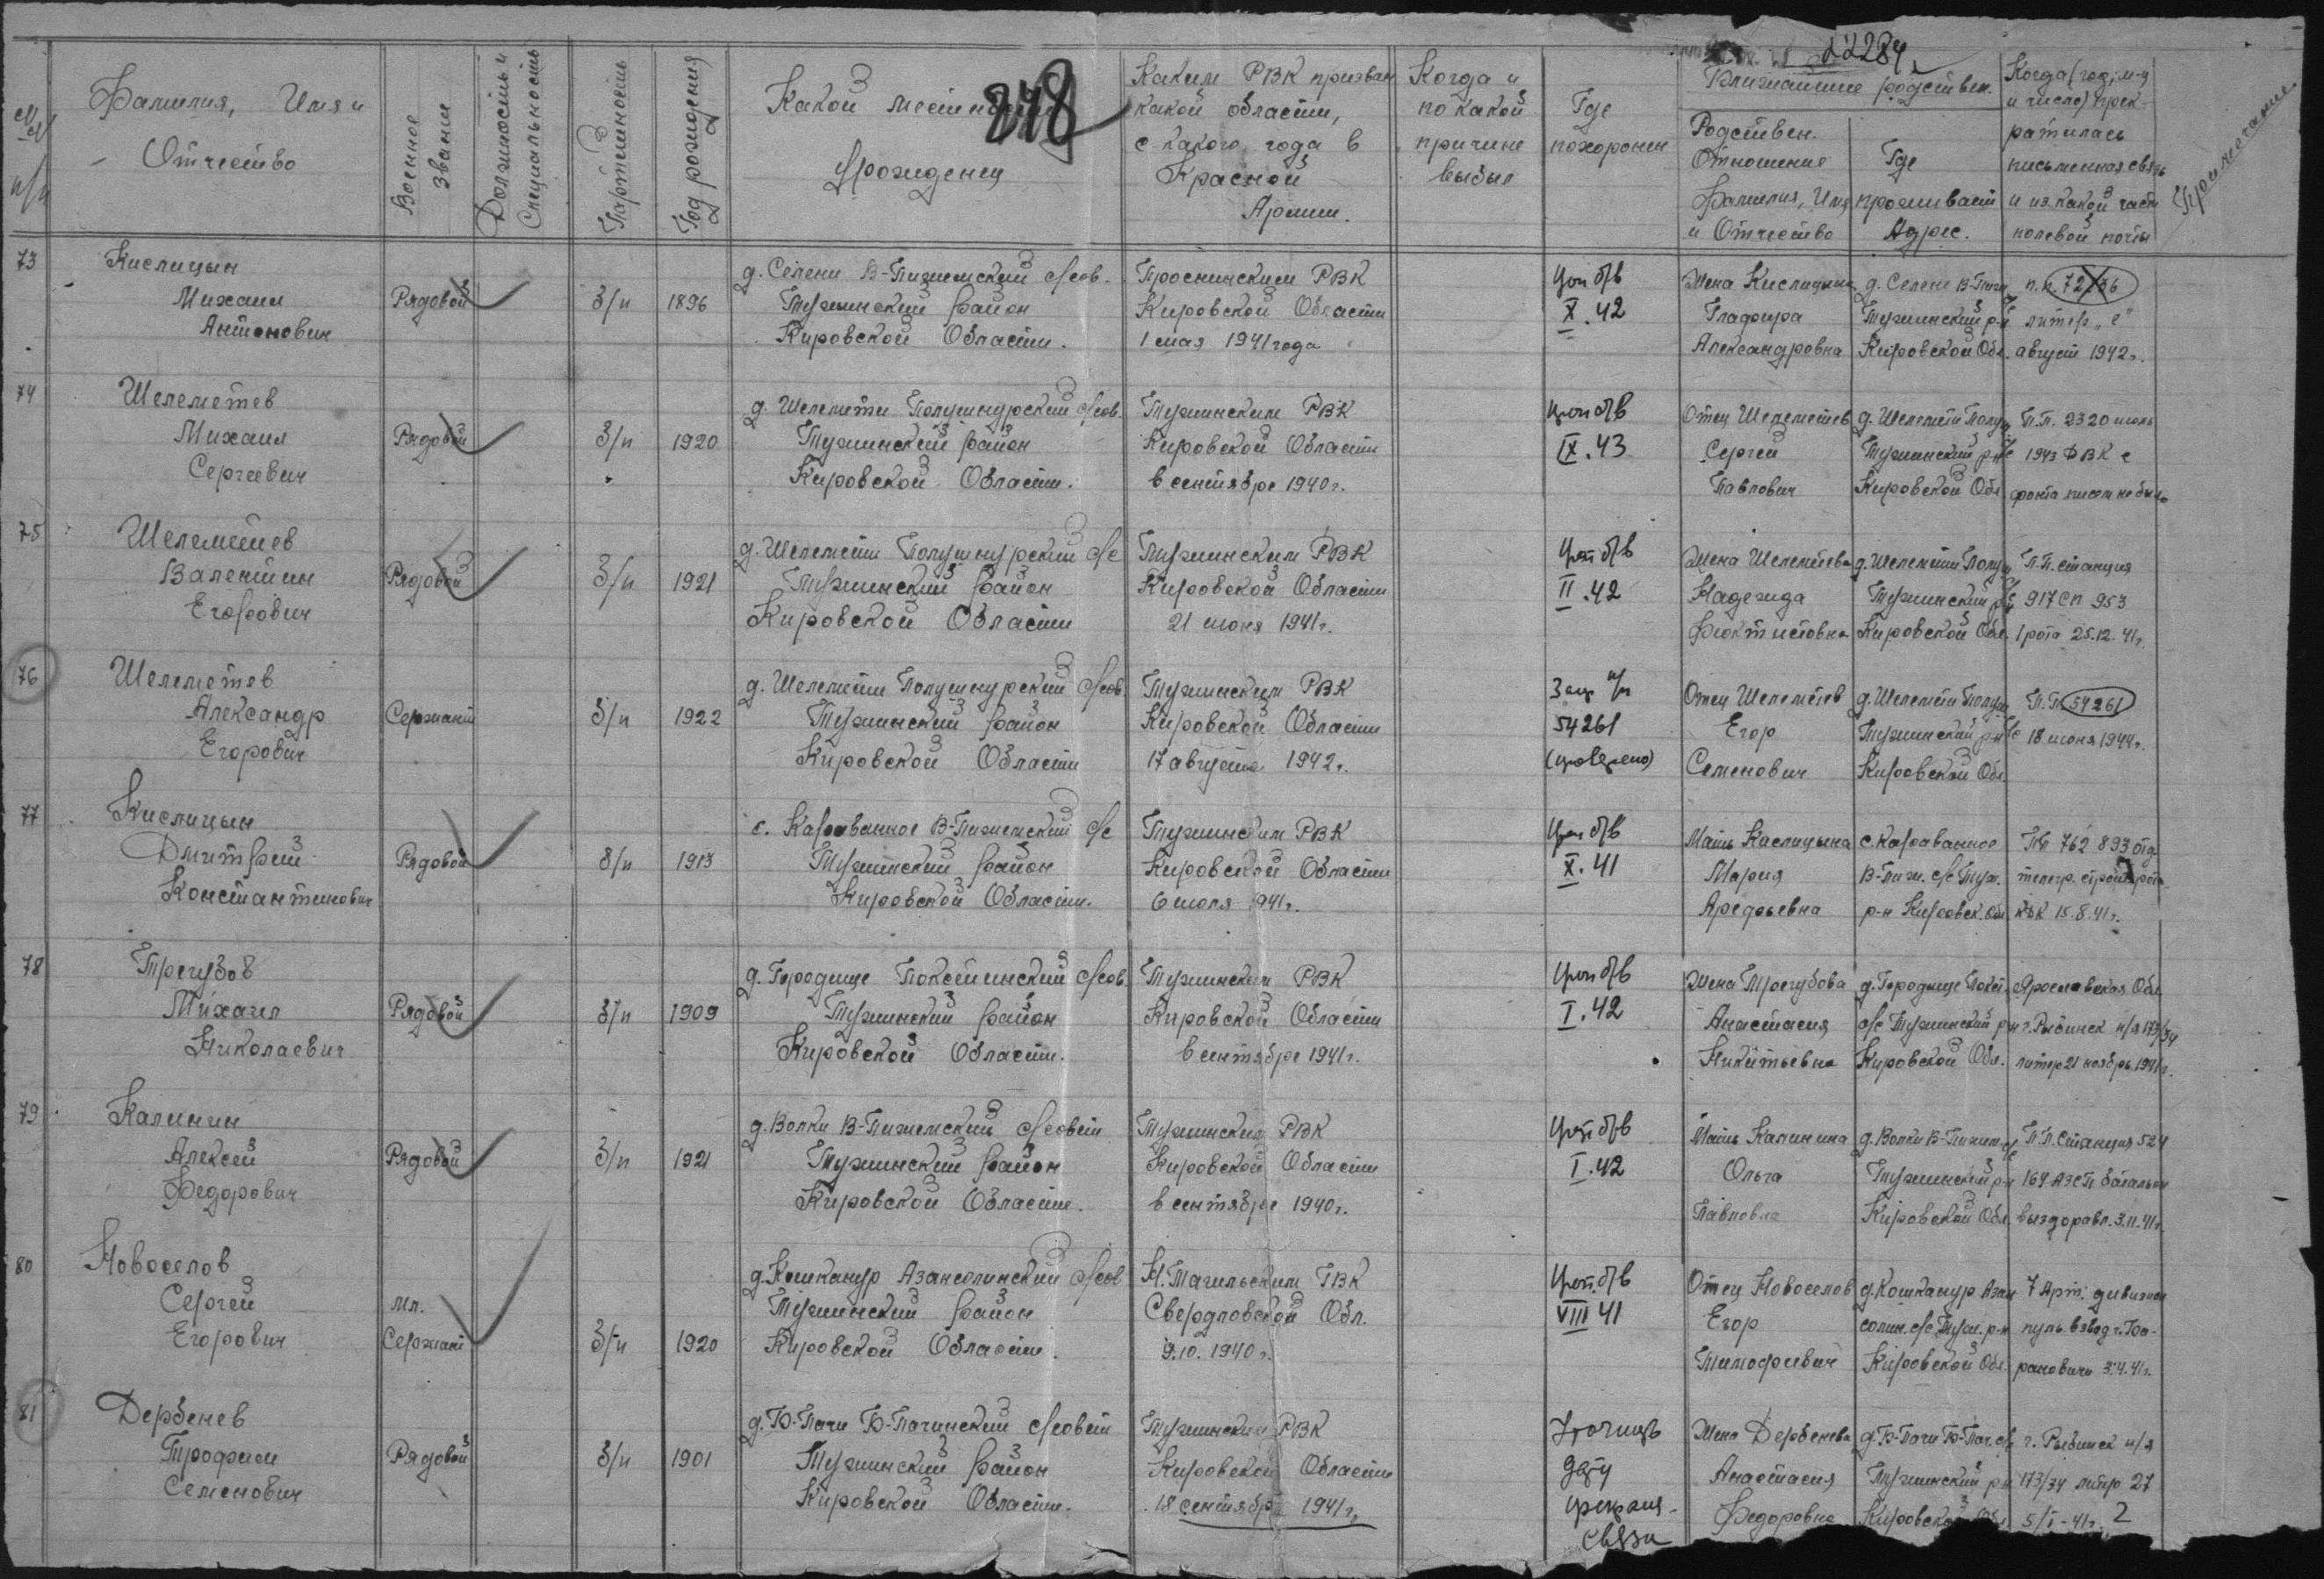 22284
248
№№ п/п
Фамилия, Имя и Отчество
Военное звание
Должность и специальность
Партийность
Год рождения
Какой местности
Уроженец
Каким РВК призван
какой области,
с какого года в
Красной
Армии.
Когда и
по какой
причине
выбыл
Где
похоронен
Ближайшие родствен.
Родствен.
Отношение
Фамилия, Имя
и Отчество
Где
проживает
Адрес.
Когда (год, м-ц
и число) прек-
ратилась
письменная связь
и из какой части
полевой почты
Примечание
73
Кислицын
Михаил
Антонович
Рядовой
б/п
1896
д. Селени В-Пижемский с/сов.
Тужинский район
Кировской Области.
Проснинским РВК
Кировской Области
1 мая 1941 года
Цоп б/в
X. 42
Жена Кислицына
Глафира
Александровна
д. Селени В-Пиж
Тужинский р-н
Кировской Обл.
п.п. 72
литер "е"
август 1942 г.
74
Шелеметев
Михаил
Сергеевич
Рядовой
б/п
1920
д. Шелемети Полушнурский с/сов.
Тужинский район
Кировской Области.
Тужинским РВК
Кировской Области
в сентябре 1940 г.
Цоп б/в
IX. 43
Отец Шелеметев
Сергей
Павлович
д. Шелемети Полуш
Тужинский р-н
Кировской Обл
П.П. 2320 июль
1943 ДВК с
фронта писем не было
75
Шелеметев
Валентин
Егорович
Рядовой
б/п
1921
д. Шелемети Полушнурский с/с
Тужинский район
Кировской Области
Тужинским РВК
Кировской Области
21 июня 1941 г.
Цоп б/в
II. 42
Жена Шелеметева
Надежда
Феоктистовна
д. Шелемети Полуш
Тужинский р-н
Кировской Обл.
П.П. станция
917 сп 953
1 рота 25.12.41 г.
76
Шелеметев
Александр
Егорович
Сержант
б/п
1922
д. Шелемети Полушнурский с/сов
Тужинский район
Кировской Области
Тужинским РВК
Кировской Области
17 августа 1942 г.
Зап п/п
54261
Отец Шелеметев
Егор
Семенович
д. Шелемети Полуш
Тужинский р-н
Кировской Обл.
П.П. 54261
18 июня 1944 г.
77
Кислицын
Дмитрий
Константинович
Рядовой
б/п
1913
с. Караванное В-Пижемский с/с
Тужинский район
Кировской Области.
Тужинским РВК
Кировской Области
6 июля 1941 г.
Цоп б/в
X. 41
Мать Кислицына
Мария
Арефьевна
с. Караванное
В-Пиж. с/с Туж.
р-н Кировск. Обл
ПП 762 893 отд
телегр. строит рота
15.8.41 г.
78
Трегубов
Михаил
Николаевич
Рядовой
б/п
1909
д. Городище Покстинский с/сов
Тужинский район
Кировской Области.
Тужинским РВК
Кировской Области
в сентябре 1941 г.
Цоп б/в
I. 42
Жена Трегубова
Анастасия
Никитьевна
д. Городище Покст.
с/с Тужинский р-н
Кировской Обл.
Ярославская Обл
г. Рыбинск п/я 173/34
литер 21 ноябрь 1941 г.
79
Калинин
Алексей
Федорович
Рядовой
б/п
1921
д. Волки В-Пижемский с/совет
Тужинский район
Кировской Области.
Тужинским РВК
Кировской Области
в сентябре 1940 г.
Цоп б/в
I. 42
Мать Калинина
Ольга
Павловна
д. Волки В-Пижем
Тужинский р-н
Кировской Обл.
П.П. Станция 524
164 АЗСП батальон
выздоравл. 3.11.41 г.
80
Новоселов
Сергей
Егорович
Мл.
Сержант
б/п
1920
д. Кошканур Азансолинский с/сов
Тужинский район
Кировской Области.
Н.Тагильским ГВК
Свердловской Обл.
9.10.1940 г.
Цоп. б/в
VIII 41
Отец Новоселов
Егор
Тимофеевич
д. Кошканур Азан
солин. с/с Туж. р-н
Кировской Обл.
7 Арт. дивизион
пуль. взвод г. Ба-
рановичи 3.4.41 г.
81
Дербенев
Трофим
Семенович
Рядовой
б/п
1901
д. Б-Пачи Б-Пачинский с/совет
Тужинский район
Кировской Области.
Тужинским РВК
Кировской Области
18 сентября 1941 г.
Уточнить
дату
прекращ-
связи
Жена Дербенева
Анастасия
Федоровна
д. Б-Пачи Б-Пач. с/с
Тужинский р-н
Кировской Обл
г. Рыбинск п/я
173/34 литер 27
5/I-41 г. 2